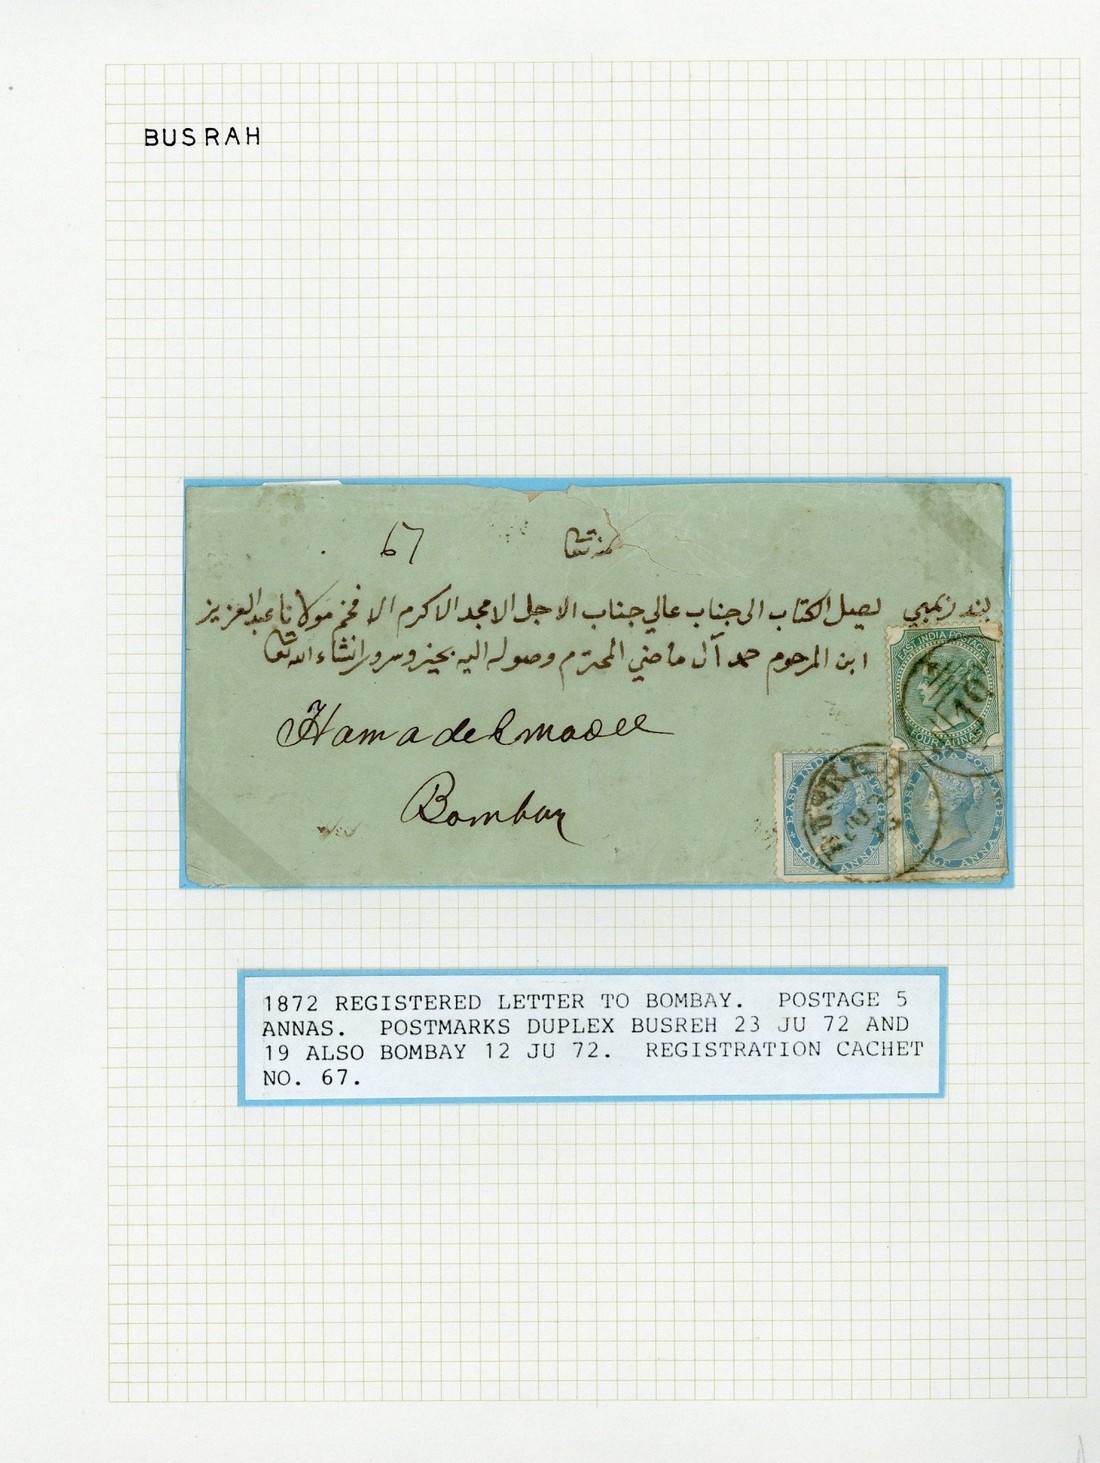 BUSRAH
67
لبندر بمبي يصل الكتاب الى جناب عالي جناب الاجل الامجد الاكرم الافخم مولانا عبد العزيز
ابن المرحوم حمد آل ماضي المحترم وصوله اليه بخير وسرور انشاء الله تعا
Hamadelmadee
Bombay
EAST INDIA POSTAGE
FOUR ANNAS
EAST INDIA POSTAGE
HALF ANNA
EAST INDIA POSTAGE
HALF ANNA
1872 REGISTERED LETTER TO BOMBAY. POSTAGE 5
ANNAS. POSTMARKS DUPLEX BUSREH 23 JU 72 AND
19 ALSO BOMBAY 12 JU 72. REGISTRATION CACHET
NO. 67.